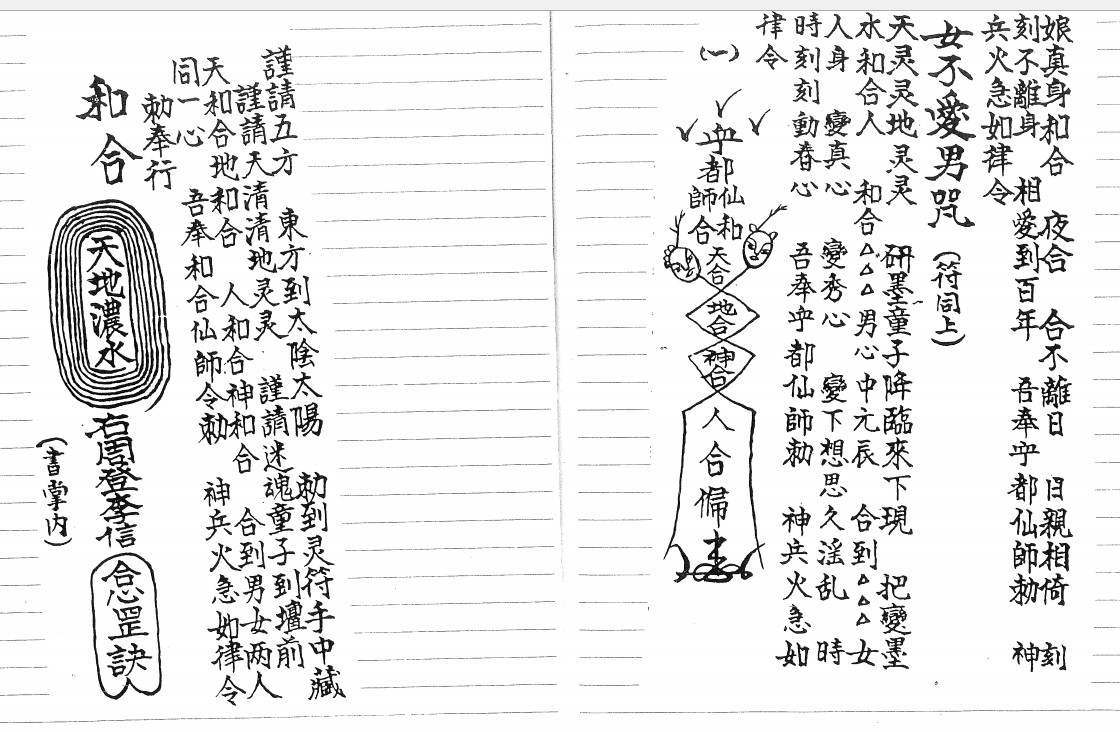 娘真身和合　夜合　合不離日　日親相倚　刻
刻不離身　相愛到百年　吾奉㞢都仙師勅　神
兵火急如律令
女不愛男咒（符同上）
天灵灵地灵灵　研墨童子降臨來下現　把變墨
水和合人　和合△△△男心中元辰　合到△△△女
人身　變真心　變秀心　變下想思久滛乱　時
時刻刻動春心　吾奉㞢都仙師勅　神兵火急如
律令
（一）
㞢都仙師
和合
天合
地合
神合
人合
謹請五方　東方到太陰太陽　勅到灵符手中藏
謹請天清清地灵灵　謹請迷魂童子到壇前
天和合地和合　人和合神和合　合到男女两人
同一心　吾奉和合仙師令勅　神兵火急如律令
勅奉行
和合
天地濃水
右周登李信
合罡訣
（書掌內）